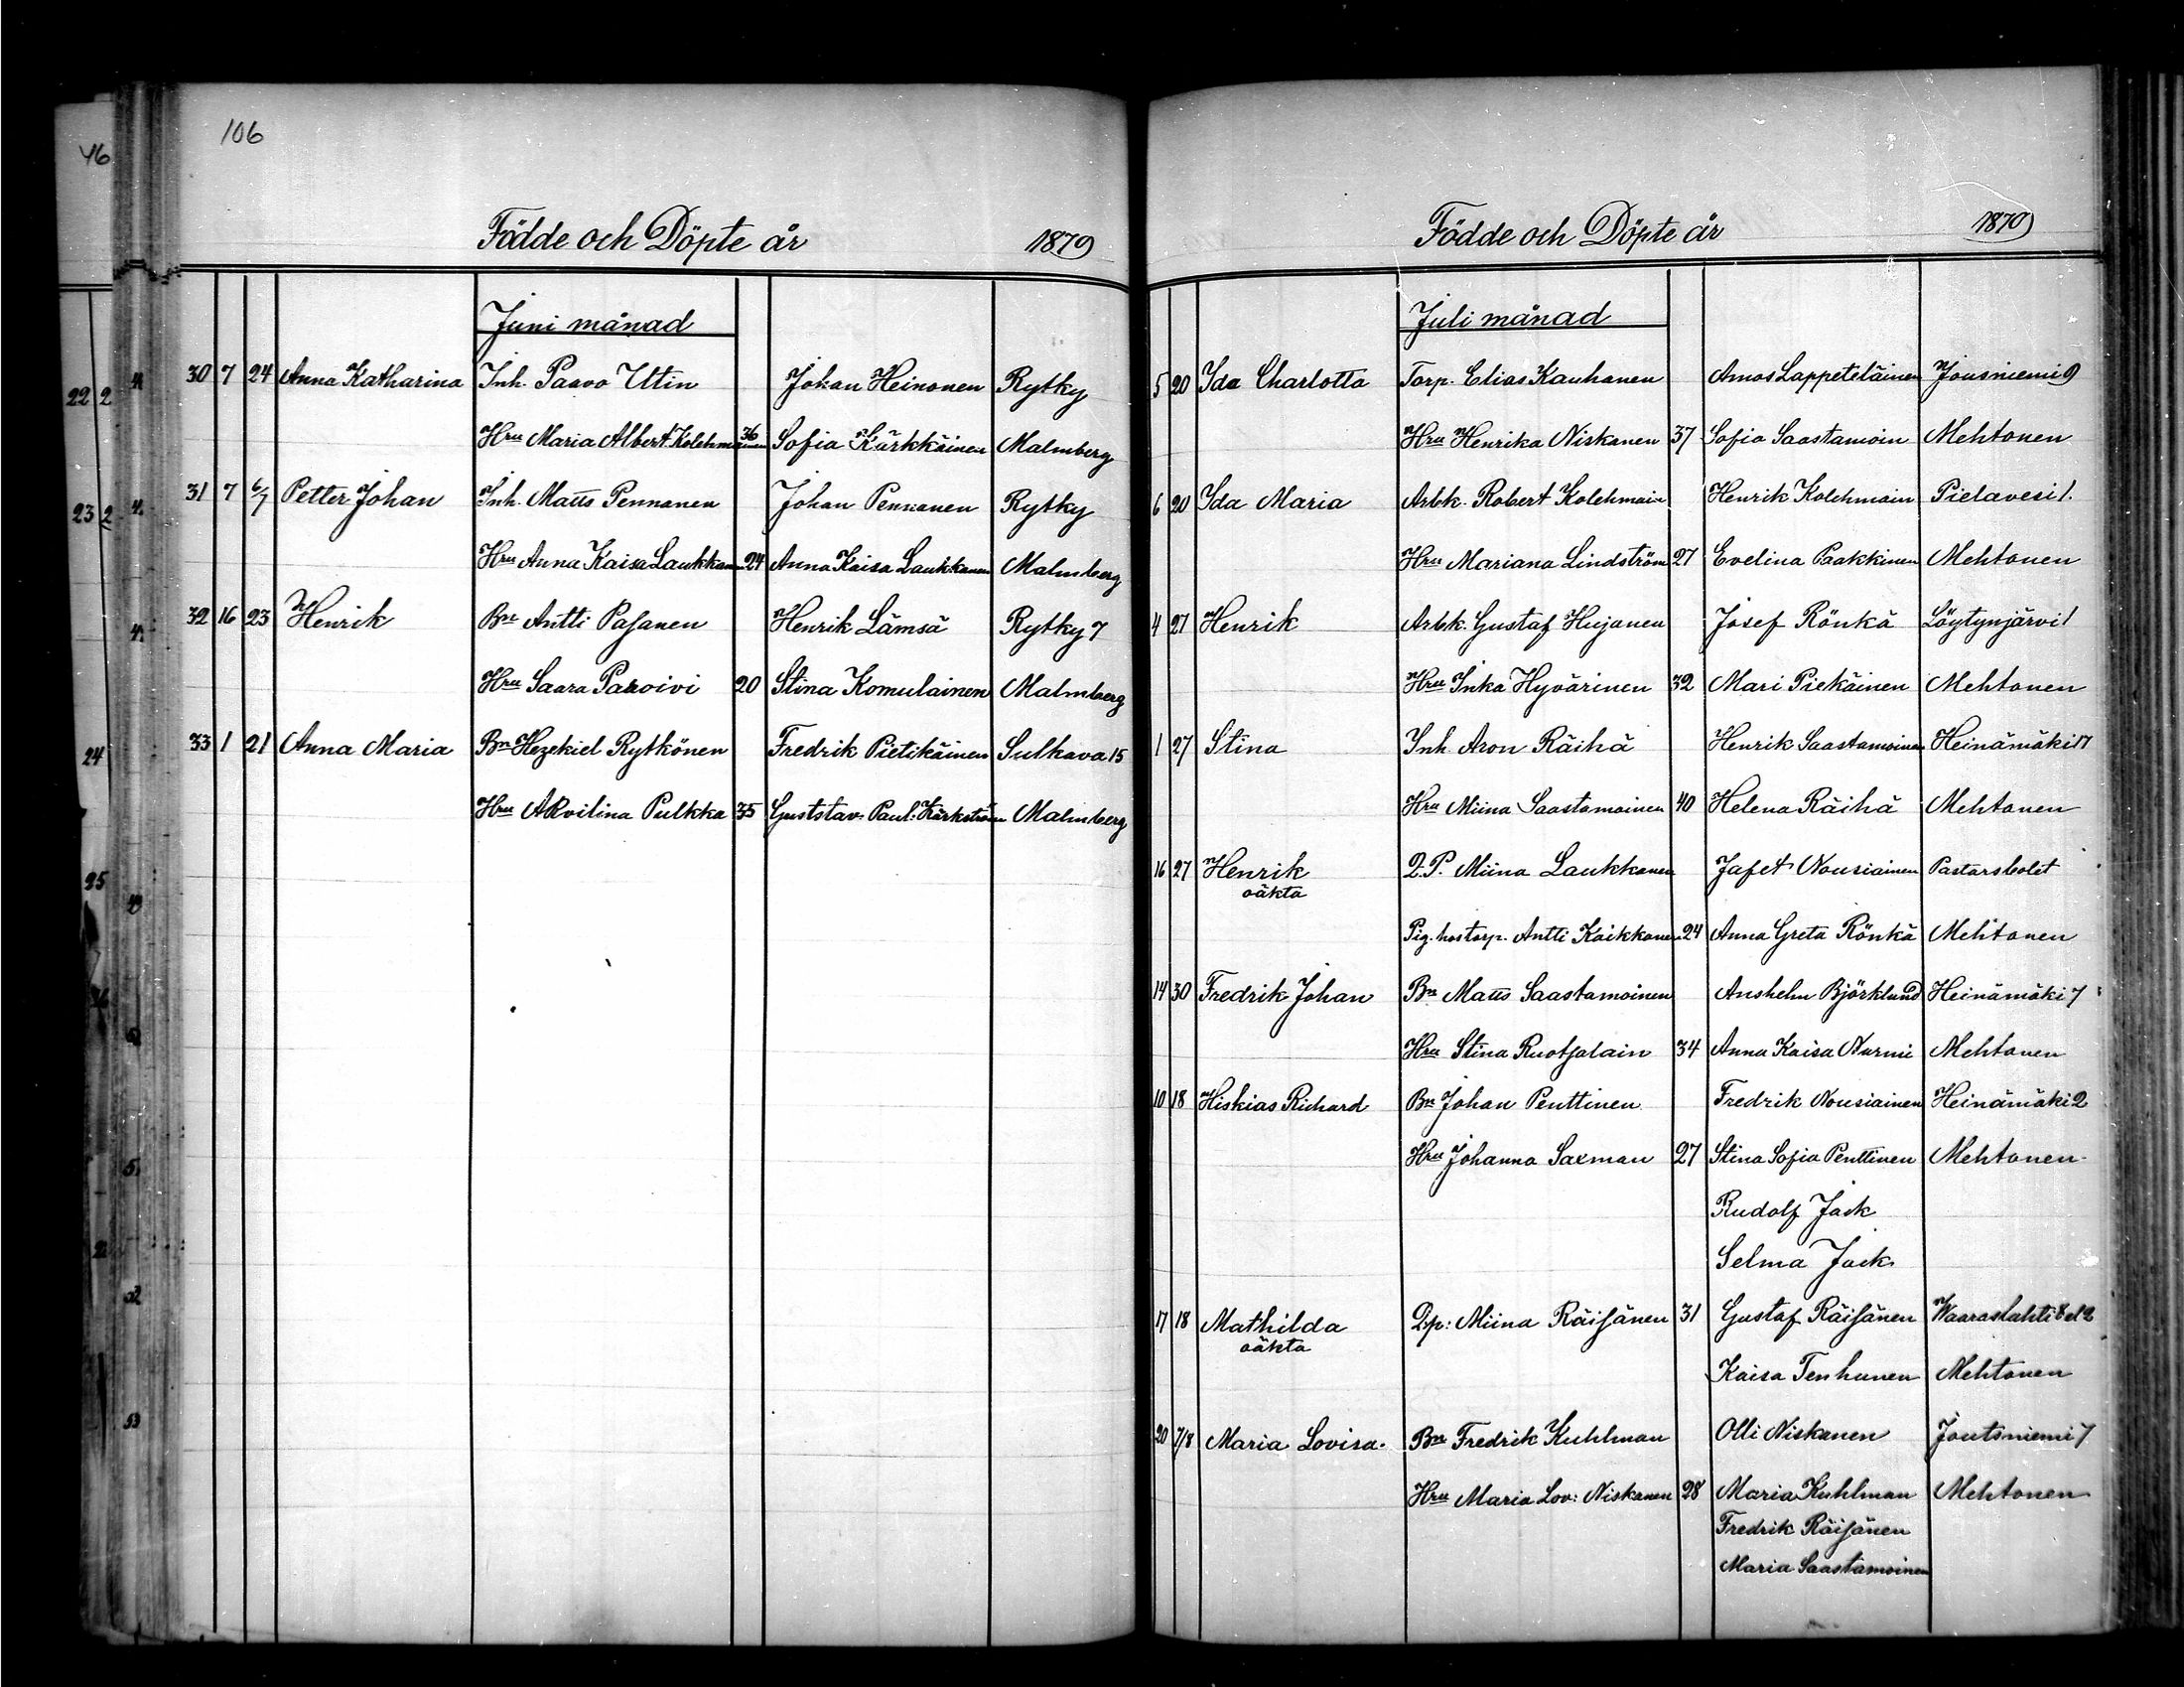 106
46
Födde och Döpte år 1879
Juni månad
30 7 24 Anna Katharina Inh. Paavo Utin Johan Heinonen Rytky
Hru Maria Albert. Kolehmainen 36 Sofia Kärkkäinen Malmberg
31 7 6/7 Petter Johan Inh. Matts Pennanen Johan Pennanen Rytky
Hru Anna Kaisa Laukkanen 24 Anna Kaisa Laukkanen Malmberg
32 16 23 Henrik Bn Antti Pasanen Henrik Lämsä Rytky 7
Hru Saara Paroivi 20 Stina Komulainen Malmberg
33 1 21 Anna Maria Bn Hezekiel Rytkönen Fredrik Pietikäinen Sulkava 15
Hru ARvilina Pulkka 35 Guststav. Paul. Kärkström Malmberg
Födde och Döpte år 1879
Juli månad
5 20 Ida Charlotta Torp. Elias Kauhanen Amos Lappeteläinen Jousniemi 9
Hru Henrika Niskanen 37 Sofia Saastamoin Mehtonen
6 20 Ida Maria Arbk. Robert Kolehmain Henrik Kolehmain Pielavesi 1.
Hru Mariana Lindström 27 Evelina Paakkinen Mehtonen
4 27 Henrik Arbk. Gustaf Hujanen Josef Rönkä Löytynjärvi 1
Hru Inka Hyvärinen 32 Mari Piekäinen Mehtonen
1 27 Stina Inh. Aron Räihä Henrik Saastamoinen Heinämäki 17
Hru Miina Saastamoinen 40 Helena Räihä Mehtonen
16 27 Henrik Q.P. Miina Laukkanen Jafet Nousiainen Pastorsbolet
oäkta
Pig. hos torp. Antti Kaikkonen 24 Anna Greta Rönkä Mehtonen
14 30 Fredrik Johan Bn Matts Saastamoinen Anshelm Björklund Heinämäki 7
Hru Stina Ruotsalain 34 Anna Kaisa Nurmi Mehtonen
10 18 Hiskias Richard Bn Johan Penttinen Fredrik Nousiainen Heinämäki 2
Hru Johanna Saxman 27 Stina Sofia Penttinen Mehtonen
Rudolf Jack
Selma Jack
17 18 Mathilda Qp: Miina Räisänen 31 Gustaf Räisänen Waaraslahti 8 el 2
oäkta
Kaisa Tenhunen Mehtonen
20 7/8 Maria Lovisa. Bn Fredrik Kuhlman Olli Niskanen Joutsniemi 7
Hru Maria Lov: Niskanen 28 Maria Kuhlman Mehtonen
Fredrik Räisänen
Maria Saastamoinen